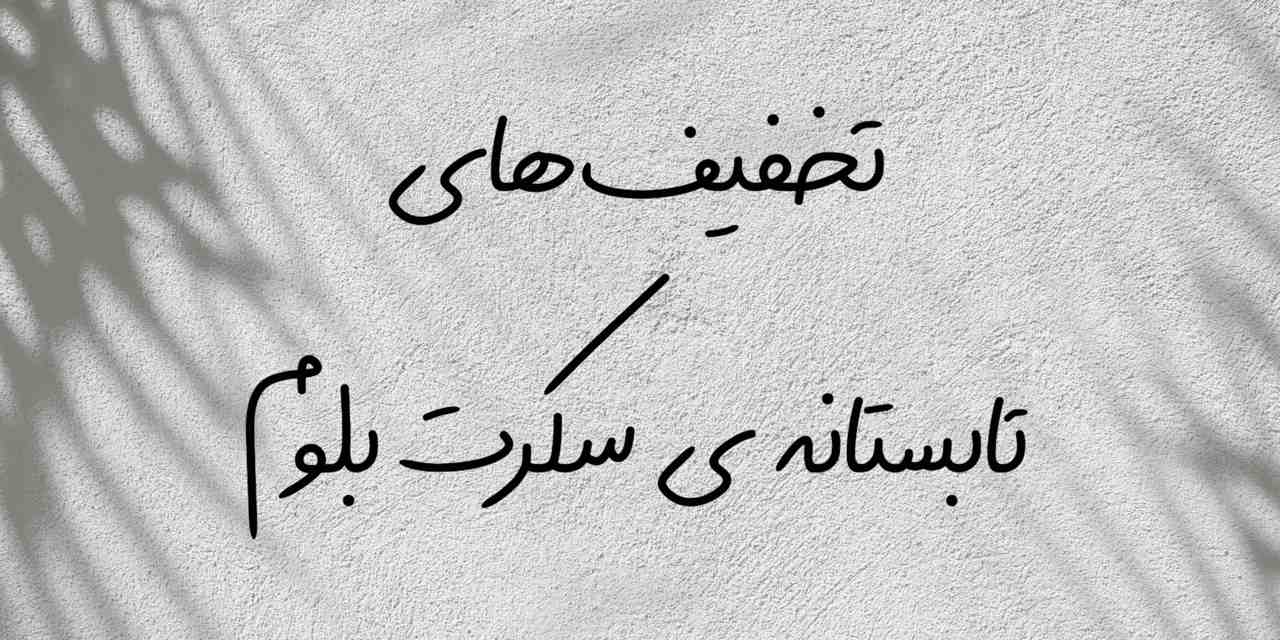 تخفیف‌های
تابستانه ی سکرت بلوم